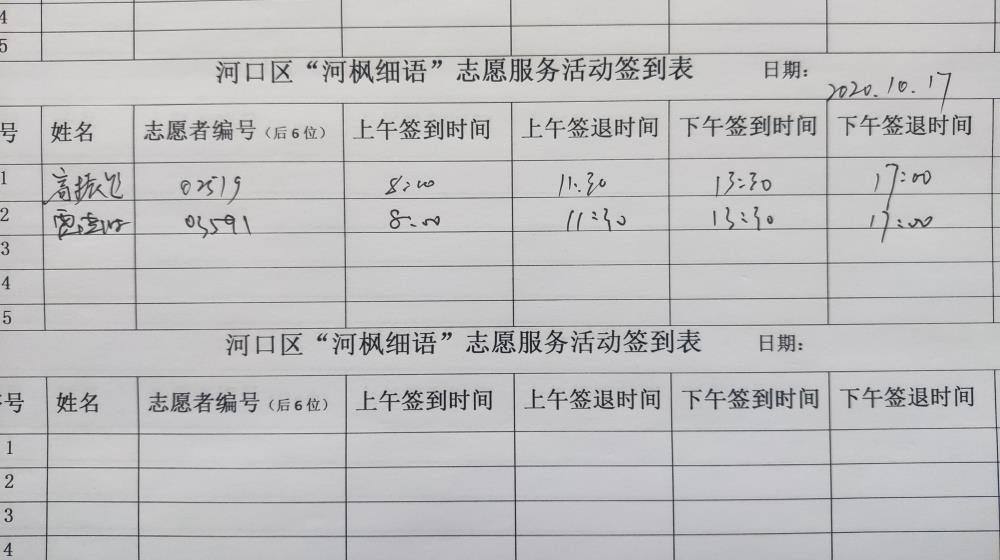 4
5
河口区“河枫细语”志愿服务活动签到表 日期: 2020.10.17
号 姓名 志愿者编号（后6位） 上午签到时间 上午签退时间 下午签到时间 下午签退时间
1 高振 02519 8:00 11:30 13:30 17:00
2 03591 8:00 11:30 13:30 17:00
3
4
5
河口区“河枫细语”志愿服务活动签到表 日期:
序号 姓名 志愿者编号（后6位） 上午签到时间 上午签退时间 下午签到时间 下午签退时间
1
2
3
4